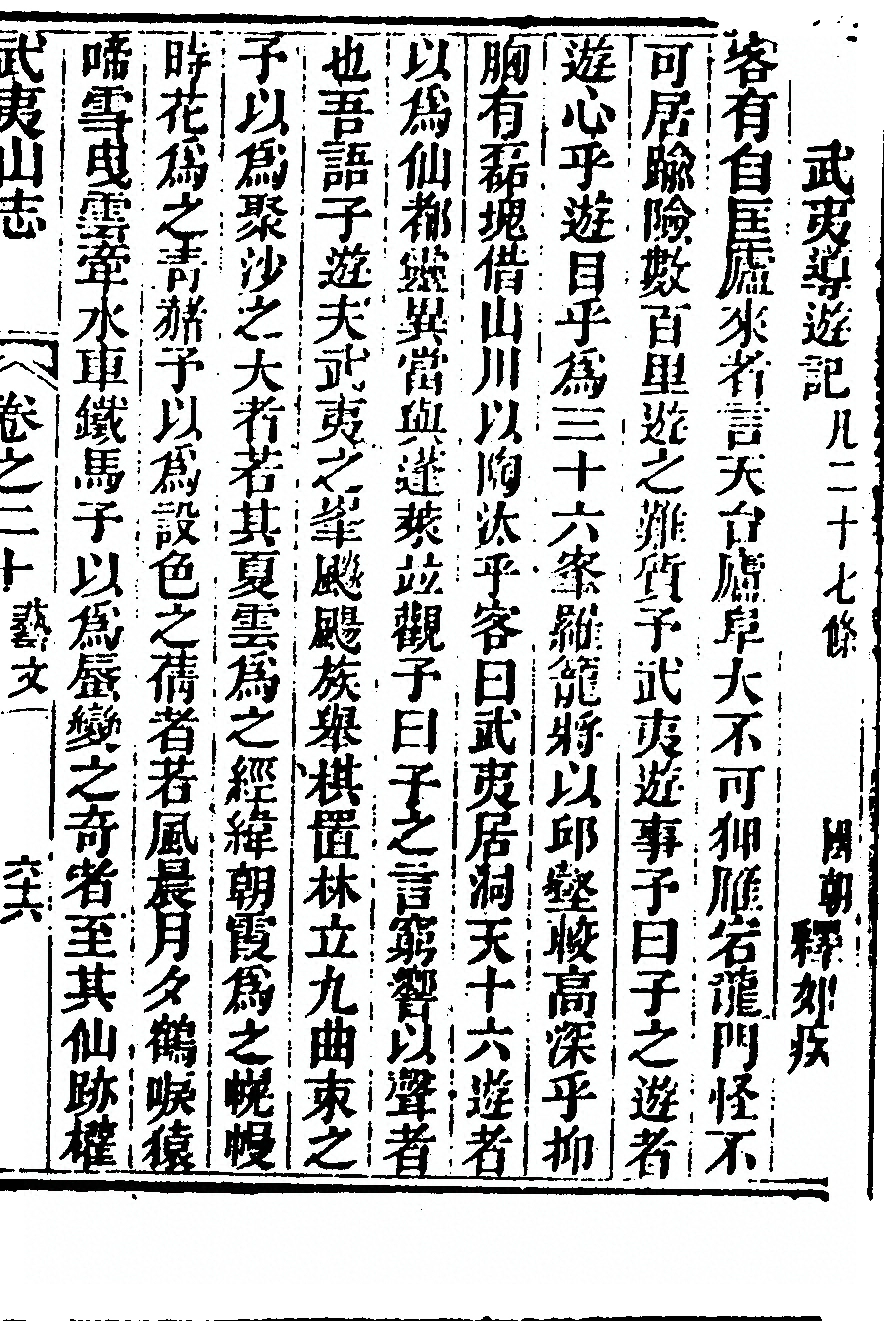 武夷導遊記凡二十七條 國朝釋如疾
客有自匡廬來者言天台廬阜大不可狎雁宕龍門怪不
可居踰險數百里遊之難質予武夷遊事予曰子之遊者
遊心乎遊目乎爲三十六峯羅籠將以邱壑較高深乎抑
胸有磊塊借山川以陶汰乎客曰武夷居洞天十六遊者
以爲仙都靈異當與蓬萊竝觀予曰子之言窮響以聲者
也吾語子遊夫武夷之峯颷颺族舉棋置林立九曲束之
予以爲聚沙之大者若其夏雲爲之經緯朝霞爲之幌幔
時花爲之青豬予以爲設色之蒨者若風晨月夕鶴唳猿
啼雪曳雲牽水車鐵馬予以爲蜃變之奇者至其仙跡權
武夷山志 卷之二十 藝文 六十六